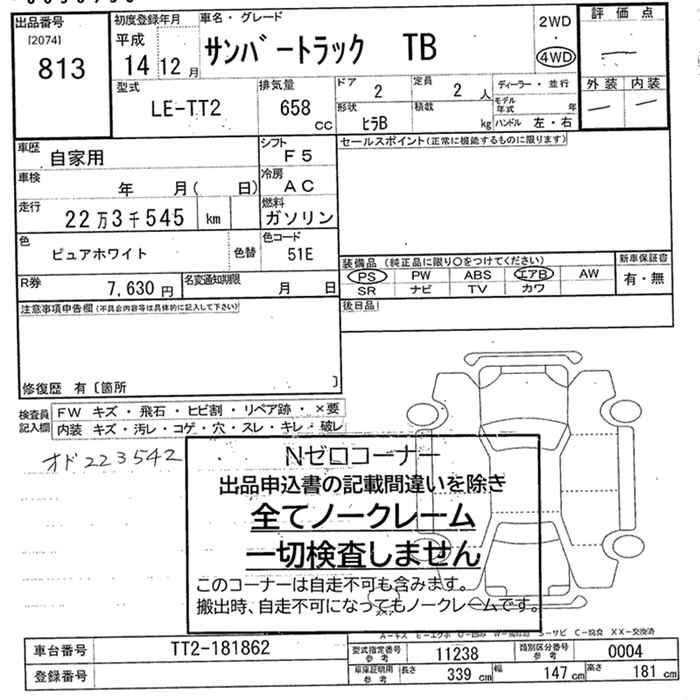 出品番号
[2074]
813
初度登録年月
平成
14 12 月
車名・グレード
サンバートラック TB
2WD
・
4WD
評価点
外装 内装
型式
LE-TT2
排気量
658
CC
ドア
2
定員
2 人
形状
ヒラB
積載
kg
ディーラー・並行
モデル年式
年
ハンドル 左・右
車歴
自家用
シフト
F5
車検
年 月( 日)
冷房
AC
走行
22万3千545 km
燃料
ガソリン
色
ピュアホワイト
色替
色コード
51E
R券
7,630円
名変通知期限
月 日
セールスポイント(正常に機能するものに限ります)
装備品 (純正品に限り○をつけてください)
PS PW ABS エアB AW
SR ナビ TV カワ
新車保証書
有・無
後日品
注意事項申告欄(不具合内容等は具体的に記入して下さい)
修復歴 有〔箇所 〕
検査員
記入欄
FW キズ・飛石・ヒビ割・リペア跡・×要
内装 キズ・汚レ・コゲ・穴・スレ・キレ・破レ
オド223542
Nゼロコーナー
出品申込書の記載間違いを除き
全てノークレーム
一切検査しません
このコーナーは自走不可も含みます。
搬出時、自走不可になってもノークレームです。
A-キズ E-エクボ U-凹み S-サビ C-腐食 XX-交換済
車台番号
TT2-181862
登録番号
型式指定番号
参考
11238
類別区分番号
参考
0004
車庫証明用
参考
長さ
339 cm
幅
147 cm
高さ
181 cm